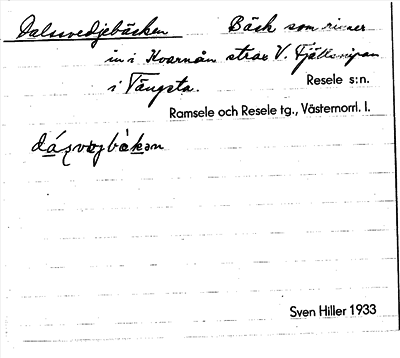 Dalsvedjebäcken Bäck som rinner
in i Kvarnån strax V. Fjällsnipan
i Tängsta. Resele s:n.
Ramsele och Resele tg., Västernorrl. l.
Sven Hiller 1933